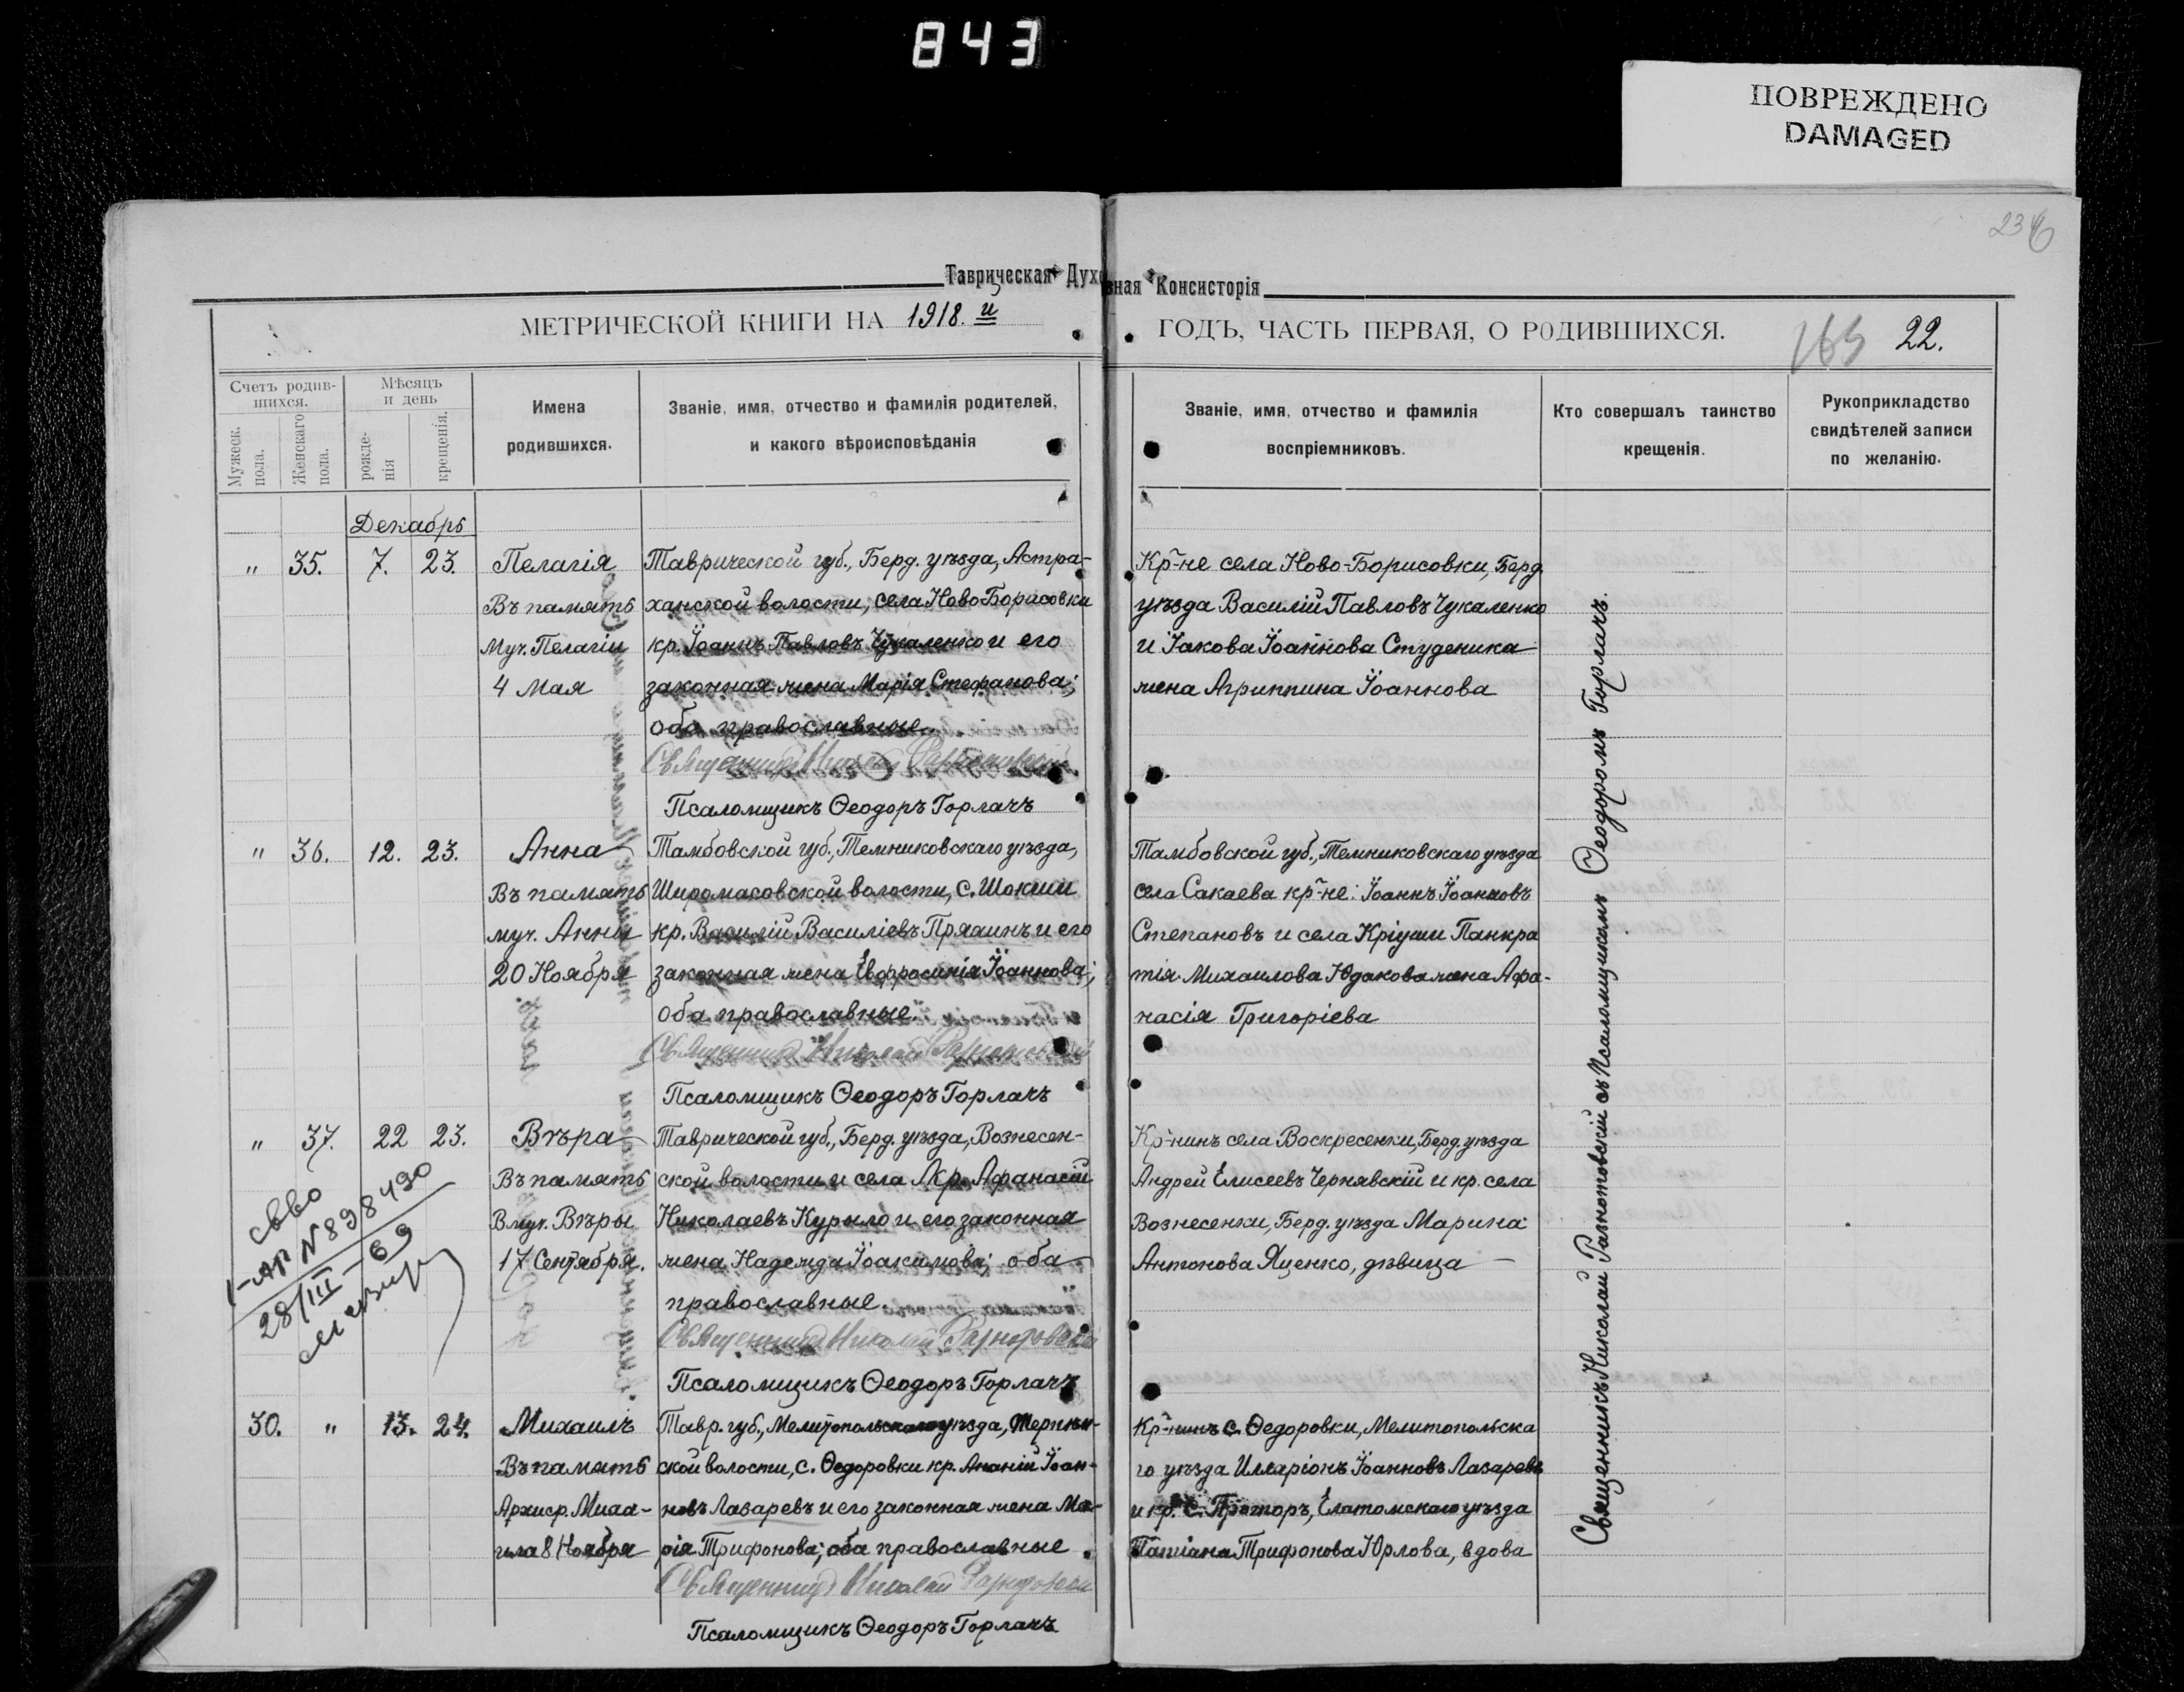 843
ПОВРЕЖДЕНО
DAMAGED
Таврическая Духовная Консисторія
МЕТРИЧЕСКОЙ КНИГИ НА 1918.й
ГОДЪ, ЧАСТЬ ПЕРВАЯ, О РОДИВШИХСЯ.
22.
Счетъ родив-
шихся.
Мужеск.
пола.
Женскаго
пола.
Мѣсяцъ
и день
рожде-
нія
крещенія.
Имена
родившихся.
Званіе, имя, отчество и фамилія родителей,
и какого вѣроисповѣданія
Званіе, имя, отчество и фамилія
воспріемниковъ.
Кто совершалъ таинство
крещенія.
Рукоприкладство
свидѣтелей записи
по желанію.
Декабрь
" 35. 7. 23. Пелагія
Въ память
Муч. Пелагіи
4 Мая
Таврической губ., Берд. уѣзда, Астра-
ханской волости, села Ново Борисовки
кр. Іоаннъ Павловъ Чукаленко и его
законная жена Марія Стефанова;
оба православные.
Священникъ Николай Разнотовскій
Псаломщикъ Ѳеодоръ Горлачъ
Кр-не села Ново-Борисовки, Берд.
уѣзда Василій Павловъ Чукаленко
и Іакова Іоаннова Студеника
жена Агриппина Іоаннова
" 36. 12. 23. Анна
Въ память
муч. Анны
20 Ноября
Тамбовской губ., Темниковскаго уѣзда,
Широмасовской волости, с. Шокши
кр. Василій Василіевъ Пряхинъ и его
законная жена Евфросинія Іоаннова;
оба православные.
Священникъ Николай Разнотовскій
Псаломщикъ Ѳеодоръ Горлачъ
Тамбовской губ., Темниковскаго уѣзда
села Сакаева кр-не: Іоаннъ Іоанновъ
Степановъ и села Кріуши Панкра
тія Михаилова Юдакова жена Афа-
насія Григоріева
" 37. 22 23. Вѣра
Въ память
В.муч. Вѣры
17 Сентября.
Таврической губ., Берд. уѣзда, Вознесен-
ской волости и села кр. Афанасій
Николаевъ Курыло и его законная
жена Надежда Іоакимова; оба
православные.
Священникъ Николай Разнотовскій
Псаломщикъ Ѳеодоръ Горлачъ
Кр-нинъ села Воскресенки, Берд. уѣзда
Андрей Елисеевъ Чернявскій и кр. села
Вознесенки, Берд. уѣзда Марина
Антонова Яценко, дѣвица
свво
I-АП N 898490
28/III-69
30. " 13. 24. Михаилъ
Въ память
Архистр. Миха-
ила 8 Ноября
Тавр. губ., Мелитопольскаго уѣзда,
ской волости, с. Ѳедоровки кр. Ананій Іоан-
новъ Лазаревъ и его законная жена Ма-
рія Трифонова; оба православные
Священникъ Николай Разнотовскій
Псаломщикъ Ѳеодоръ Горлачъ
Кр-нинъ с. Ѳедоровки, Мелитопольска
го уѣзда Илларіонъ Іоанновъ Лазаревъ
и кр. с. Елатомскаго уѣзда
Татіана Трифонова Юрлова, вдова
Священникъ Николай Разнотовскій съ Псаломщикомъ Ѳеодоромъ Горлачъ.